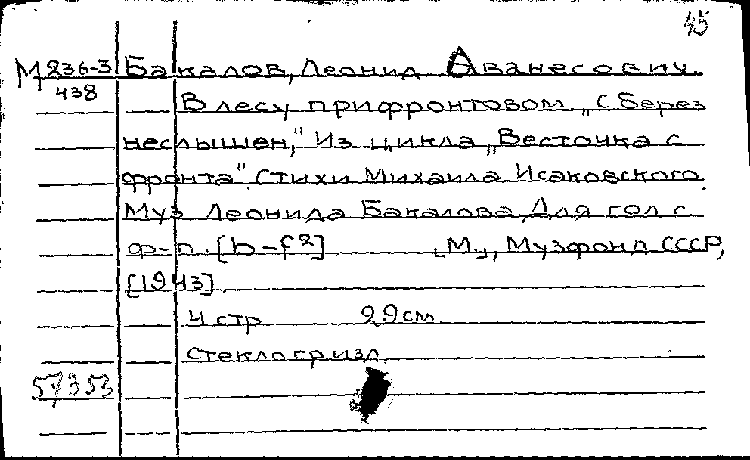 45
М 236-3 Бакалов, Леонид Аванесович.
438
В лесу прифронтовом „С берез
неслышен," Из цикла „Весточка с
фронта". Стихи Михаила Исаковского.
Муз Леонида Бакалова Для гол с
ф-п. [b-f²] [М.], Музфонд СССР,
[1943].
4 стр 29см
Стеклогр изд.
57353